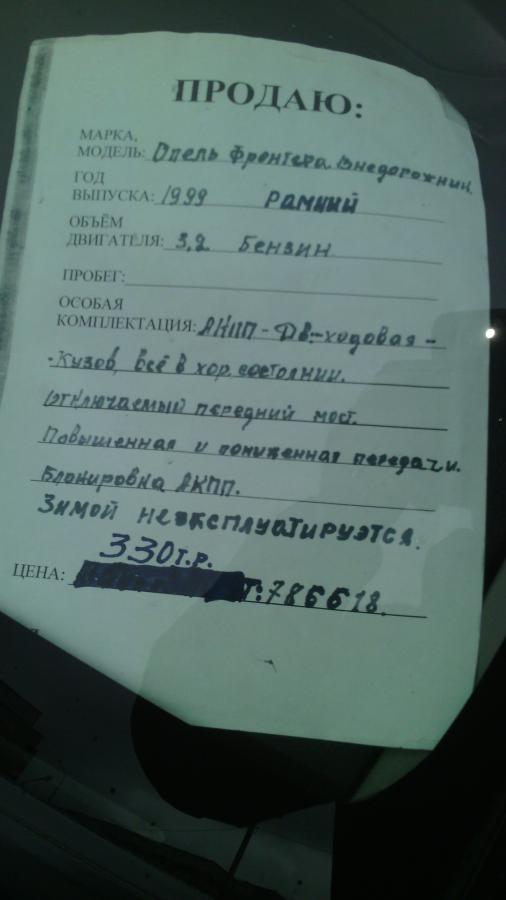 ПРОДАЮ:
МАРКА,
МОДЕЛЬ: Опель Фронтера Внедорожник
ГОД
ВЫПУСКА: 1999 РАМНЫЙ
ОБЪЁМ
ДВИГАТЕЛЯ: 3,2 Бензин
ПРОБЕГ:
ОСОБАЯ
КОМПЛЕКТАЦИЯ: АКПП - ДВ.-ходовая -
- Кузов, всё в хор. состоянии.
Отключаемый передний мост.
Повышенная и пониженная передачи.
Блокировка АКПП.
Зимой не эксплуатируется.
330 т.р.
ЦЕНА: Т: 786618.